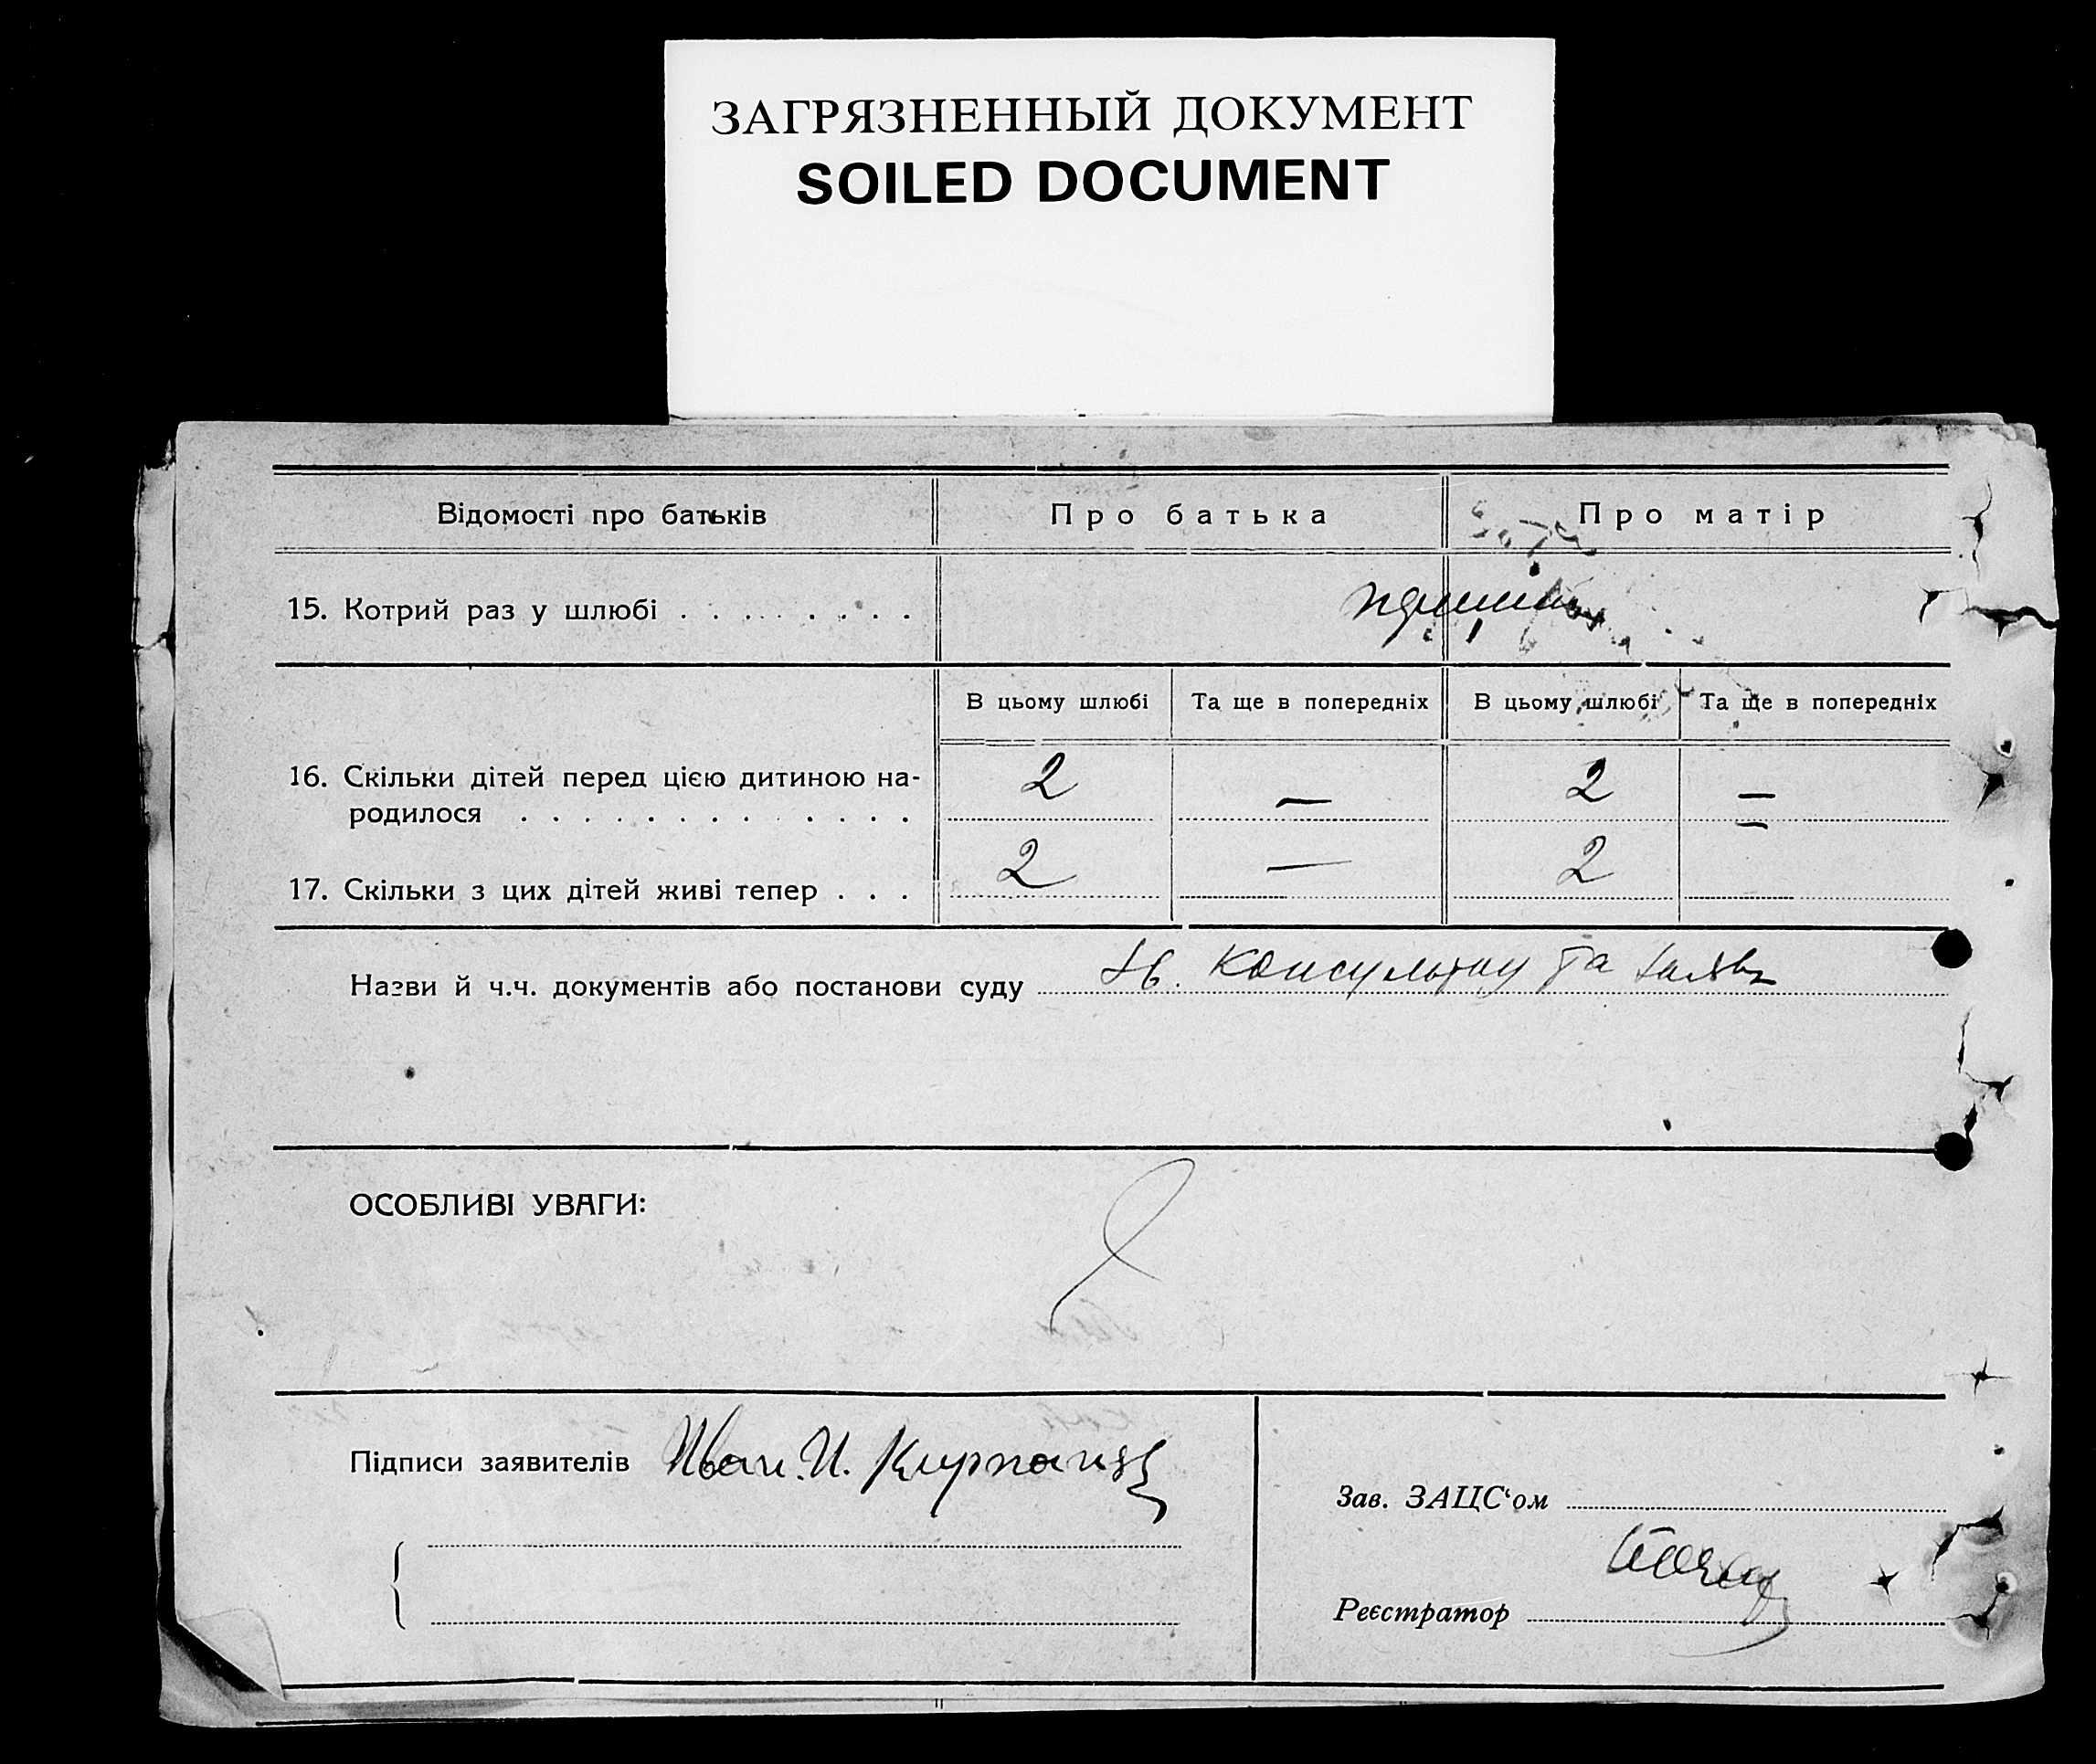 ЗАГРЯЗНЕННЫЙ ДОКУМЕНТ
SOILED DOCUMENT
Відомості про батьків Про батька Про матір
15. Котрий раз у шлюбі . . . . . . . .
В цьому шлюбі Та ще в попередніх В цьому шлюбі Та ще в попередніх
16. Скільки дітей перед цією дитиною на-
родилося . . . . . . . . . . . . . 2 — 2 —
17. Скільки з цих дітей живі тепер . . . 2 — 2 —
Назви й ч.ч. документів або постанови суду консультну та
ОСОБЛИВІ УВАГИ:
Підписи заявителів Иван. И.
Зав. ЗАЦС‘ом
Реєстратор